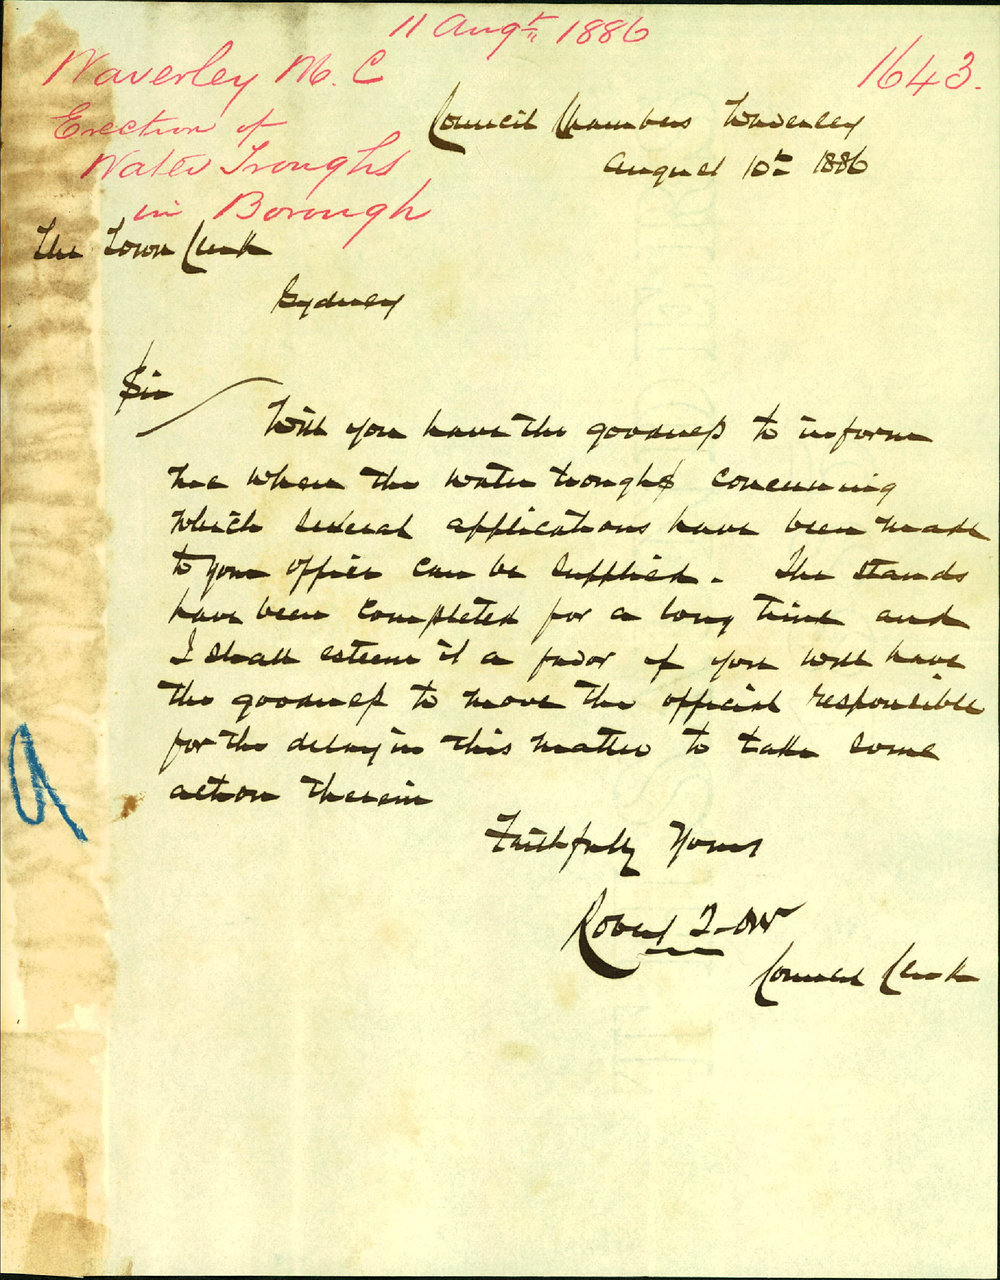 11 Augt 1886
1643.
Waverley M. C
Erection of
Water Troughs
in Borough
Council Chambers Waverley
August 10th 1886
The Town Clerk
Sydney
Sir
Will you have the goodness to inform
me when the water troughs concerning
which several applications have been made
to your office can be supplied. The stands
have been completed for a long time and
I shall esteem it a favor if you will have
the goodness to move the official responsible
for the delay in this matter to take some
action therein
Faithfully Yours
Robert
Council Clerk